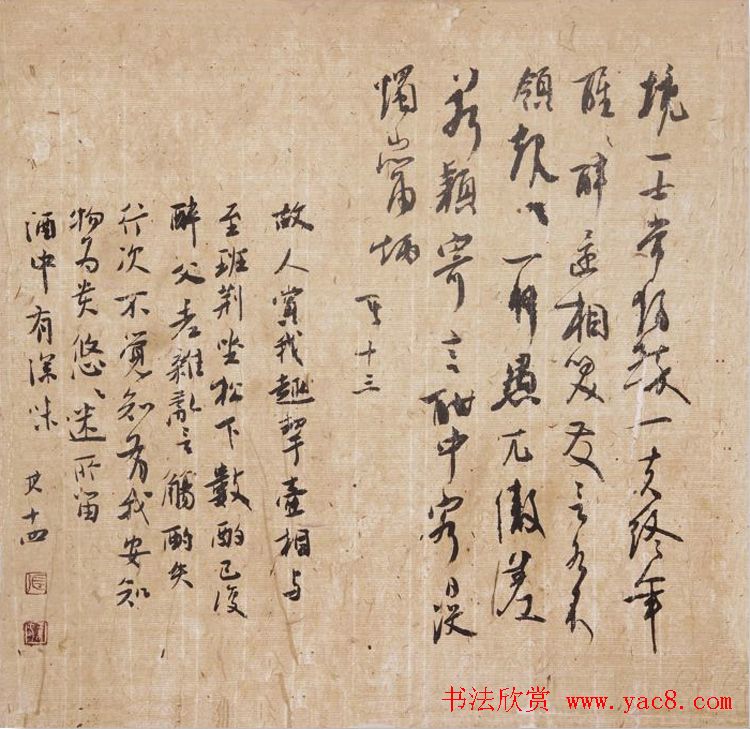 境一士常獨醉一夫終年
醒、醉還相笑發言各不
領規、一何愚兀傲差
若穎寄言酣中客日沒
燭當炳 其十三
故人賞我趣挈壺相與
至班荊坐松下數酌已復
醉父老雜亂言觴酌失
行次不覺知有我安知
物為貴悠、迷所留
酒中有深味 其十四
书法欣赏 www.yac8.com